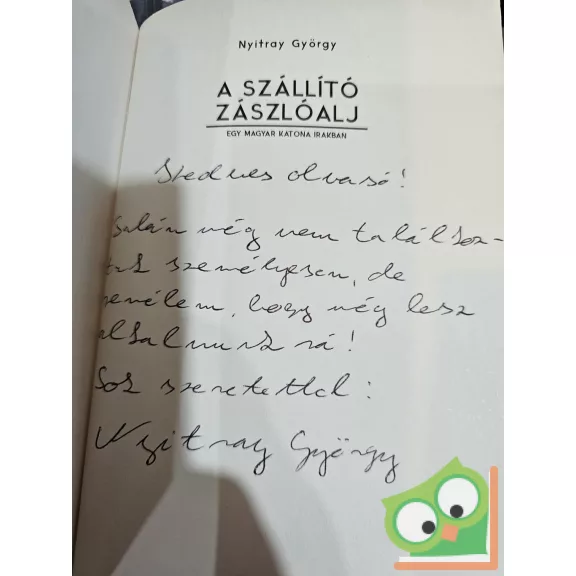 Nyitray György
A SZÁLLÍTÓ
ZÁSZLÓALJ
EGY MAGYAR KATONA IRAKBAN
Kedves olvasó!
Talán még nem találkoz-
tunk személyesen, de
remélem, hogy még lesz
alkalmunk rá!
Sok szeretettel:
Nyitray György